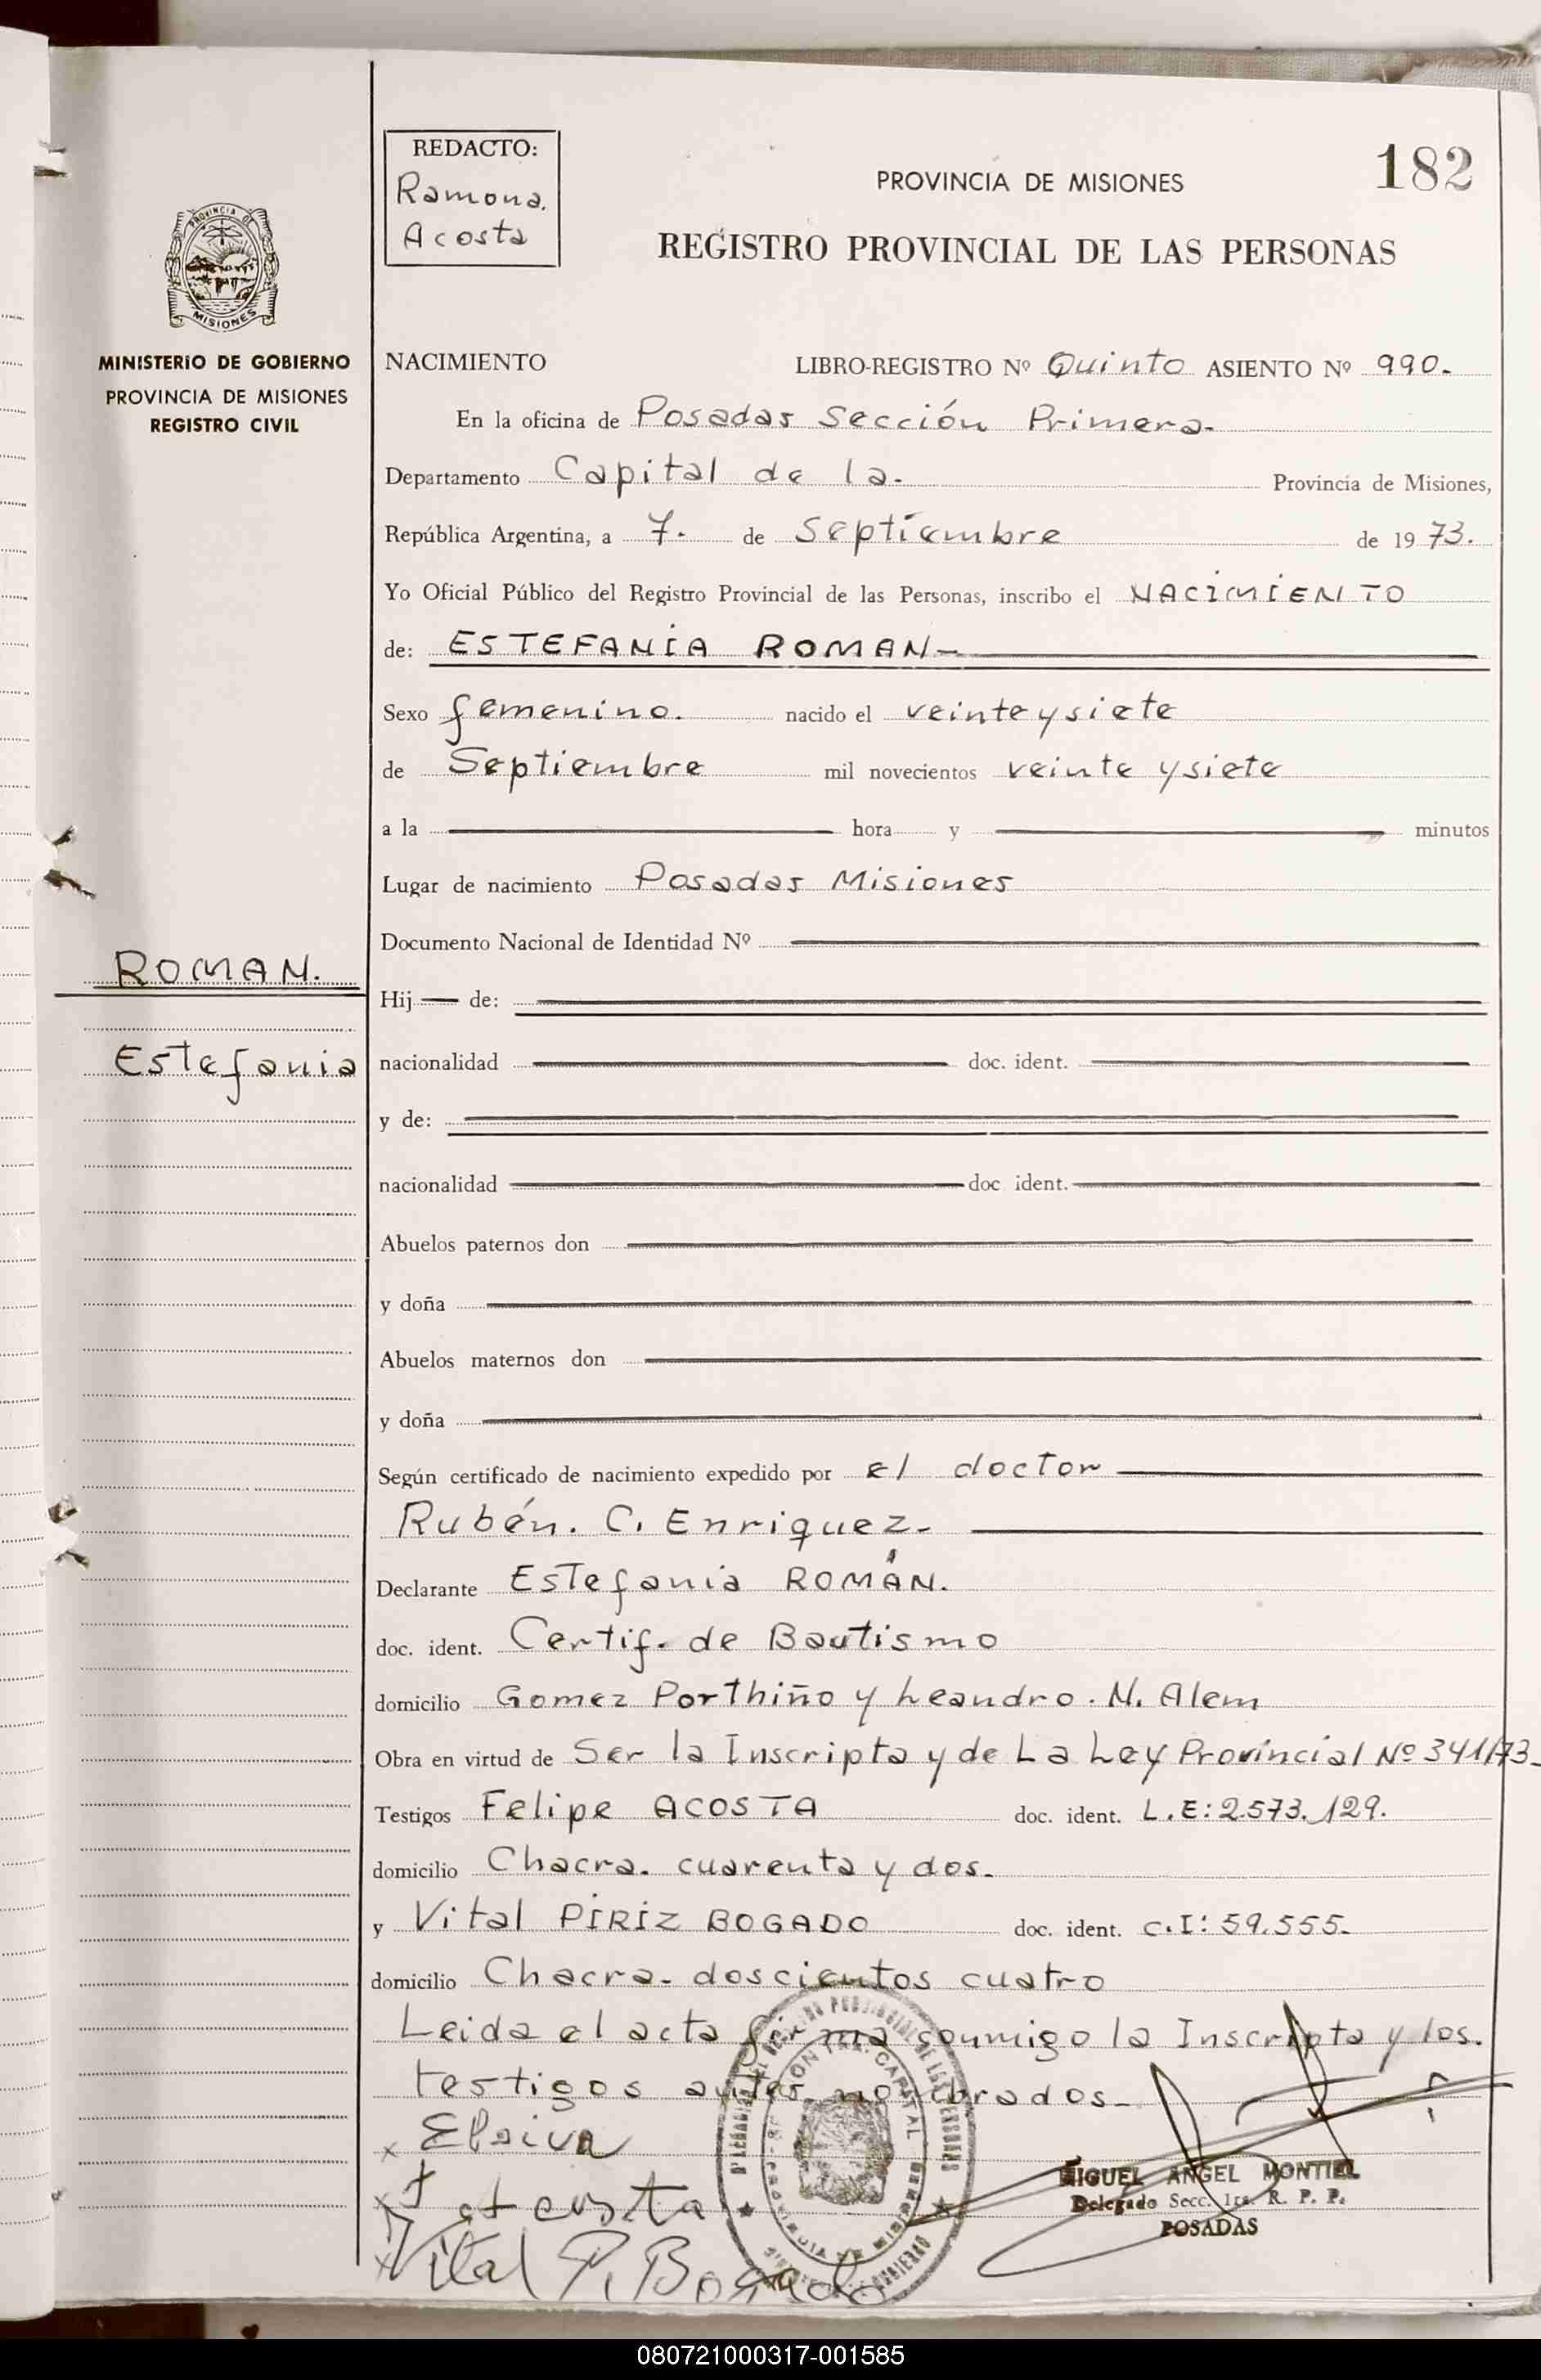 REDACTO:
Ramona.
Acosta
182
PROVINCIA DE MISIONES
REGISTRO PROVINCIAL DE LAS PERSONAS
PROVINCIA DE
MISIONES
MINISTERIO DE GOBIERNO
PROVINCIA DE MISIONES
REGISTRO CIVIL
NACIMIENTO LIBRO-REGISTRO Nº Quinto ASIENTO Nº 990.
En la oficina de Posadas Sección Primera-
Departamento Capital de la. Provincia de Misiones,
República Argentina, a 7. de Septiembre de 1973.
Yo Oficial Público del Registro Provincial de las Personas, inscribo el NACIMIENTO
de: ESTEFANIA ROMAN-
Sexo femenino. nacido el veinte y siete
de Septiembre mil novecientos veinte y siete
a la hora y minutos
Lugar de nacimiento Posadas Misiones
Documento Nacional de Identidad Nº
ROMAN.
Hij de:
Estefania
nacionalidad doc. ident.
y de:
nacionalidad doc ident.
Abuelos paternos don
y doña
Abuelos maternos don
y doña
Según certificado de nacimiento expedido por el doctor
Rubén. C. Enriquez-
Declarante Estefania ROMÁN.
doc. ident. Certif. de Bautismo
domicilio Gomez Porthiño y Leandro. N. Alem
Obra en virtud de Ser la Inscripta y de La Ley Provincial Nº 341/73-
Testigos Felipe ACOSTA doc. ident. L.E: 2.573.129.
domicilio Chacra. cuarenta y dos-
y Vital PIRIZ BOGADO doc. ident. C.I: 59.555-
domicilio Chacra- doscientos cuatro
Leida el acta firma conmigo la Inscripta y los.
testigos antes nombrados-
MIGUEL ANGEL MONTIEL
Delegado Secc. 1ra. R. P. P.
POSADAS
Vital P. Bogado
080721000317-001585